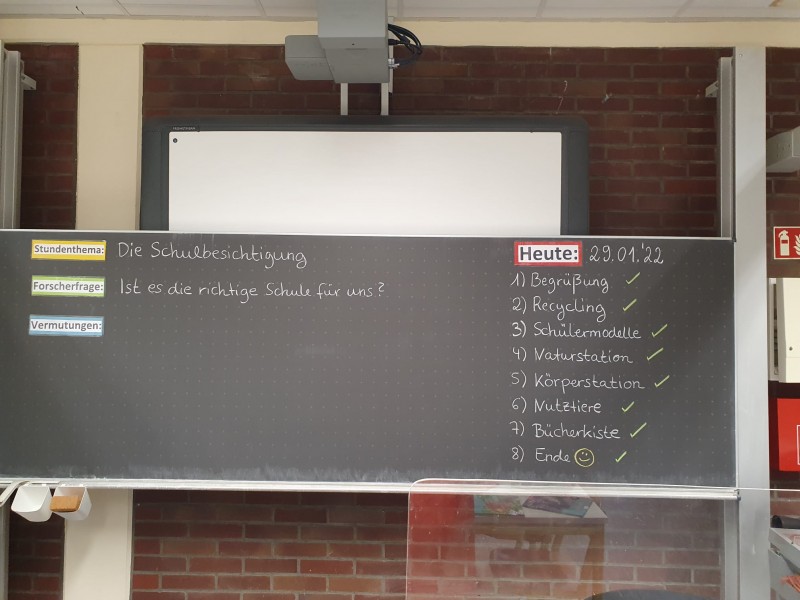 Stundenthema: Die Schulbesichtigung
Forscherfrage: Ist es die richtige Schule für uns?
Vermutungen:
Heute: 29.01.'22
1) Begrüßung ✓
2) Recycling ✓
3) Schülermodelle ✓
4) Naturstation ✓
5) Körperstation ✓
6) Nutztiere ✓
7) Bücherkiste ✓
8) Ende ☺ ✓